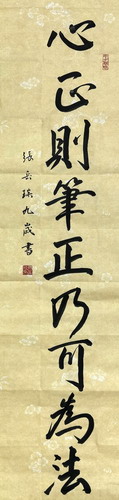 心正則筆正乃可為法
張云瑞九歲書